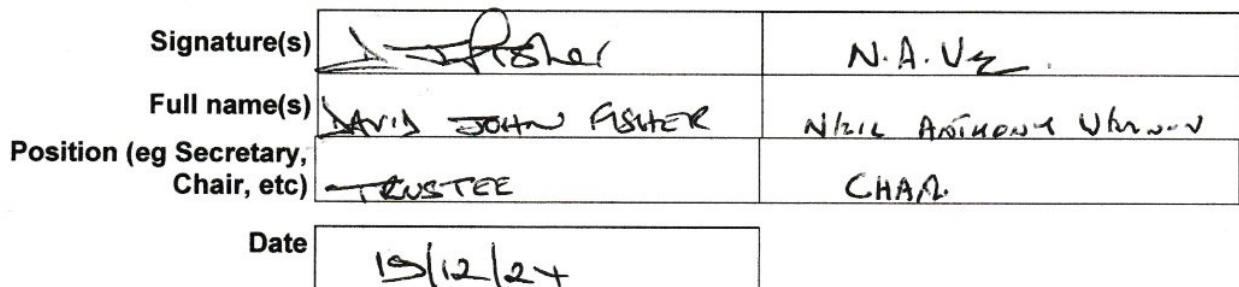 Signature(s) D J Fisher N.A.V
Full name(s) DAVID JOHN FISHER ANTHONY
Position (eg Secretary,
Chair, etc) TRUSTEE CHAIR
Date 19/12/24